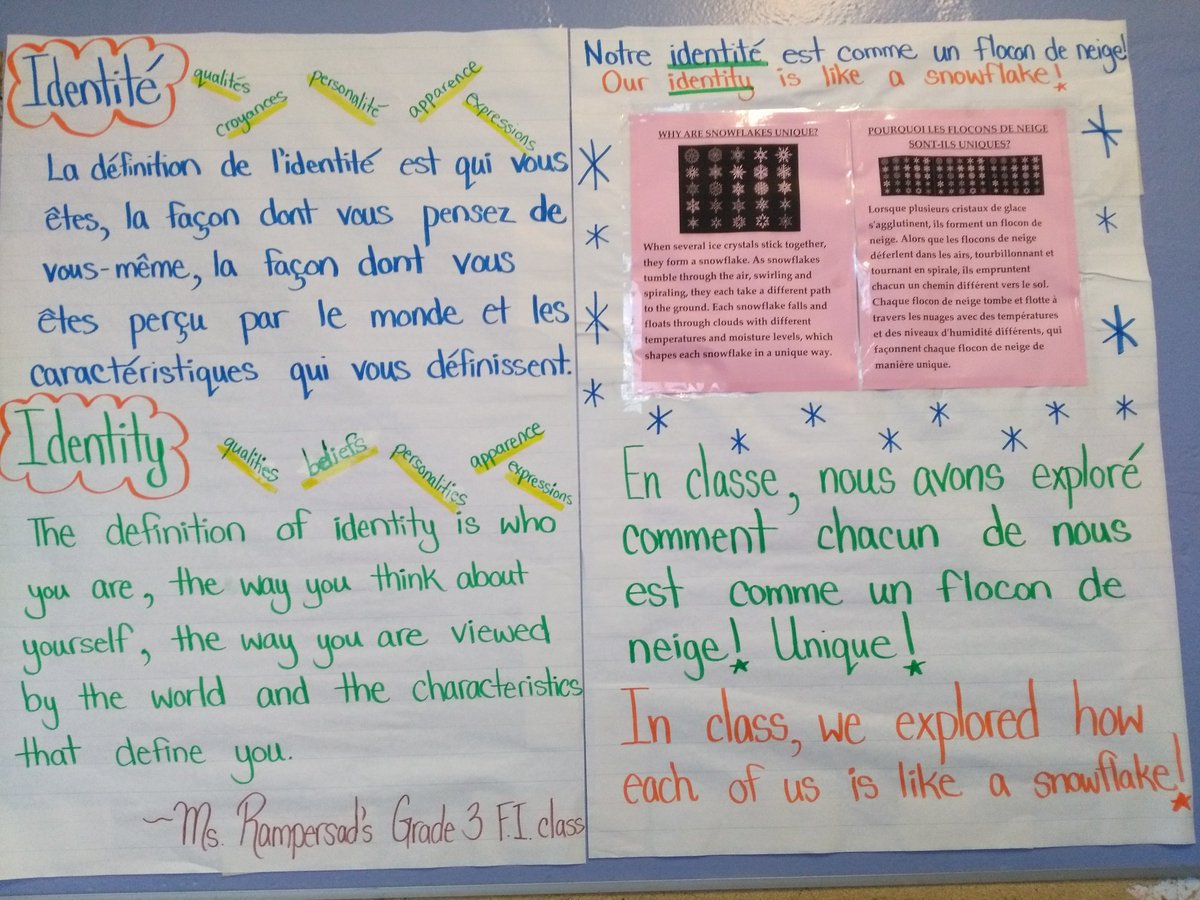 Identité
qualités
croyances
personalité
apparence
expressions
La définition de l'identité est qui vous
êtes, la façon dont vous pensez de
vous-même, la façon dont vous
êtes perçu par le monde et les
caractéristiques qui vous définissent.
Identity
qualities
beliefs
personalities
apparence
expressions
The definition of identity is who
you are, the way you think about
yourself, the way you are viewed
by the world and the characteristics
that define you.
~Ms. Rampersad's Grade 3 F.I. class
Notre identité est comme un flocon de neige!
Our identity is like a snowflake!
WHY ARE SNOWFLAKES UNIQUE?
When several ice crystals stick together,
they form a snowflake. As snowflakes
tumble through the air, swirling and
spiraling, they each take a different path
to the ground. Each snowflake falls and
floats through clouds with different
temperatures and moisture levels, which
shapes each snowflake in a unique way.
POURQUOI LES FLOCONS DE NEIGE
SONT-ILS UNIQUES?
Lorsque plusieurs cristaux de glace
s'agglutinent, ils forment un flocon de
neige. Alors que les flocons de neige
déferlent dans les airs, tourbillonnant et
tournant en spirale, ils empruntent
chacun un chemin différent vers le sol.
Chaque flocon de neige tombe et flotte à
travers les nuages avec des températures
et des niveaux d'humidité différents, qui
façonnent chaque flocon de neige de
manière unique.
En classe, nous avons exploré
comment chacun de nous
est comme un flocon de
neige! Unique!
In class, we explored how
each of us is like a snowflake!